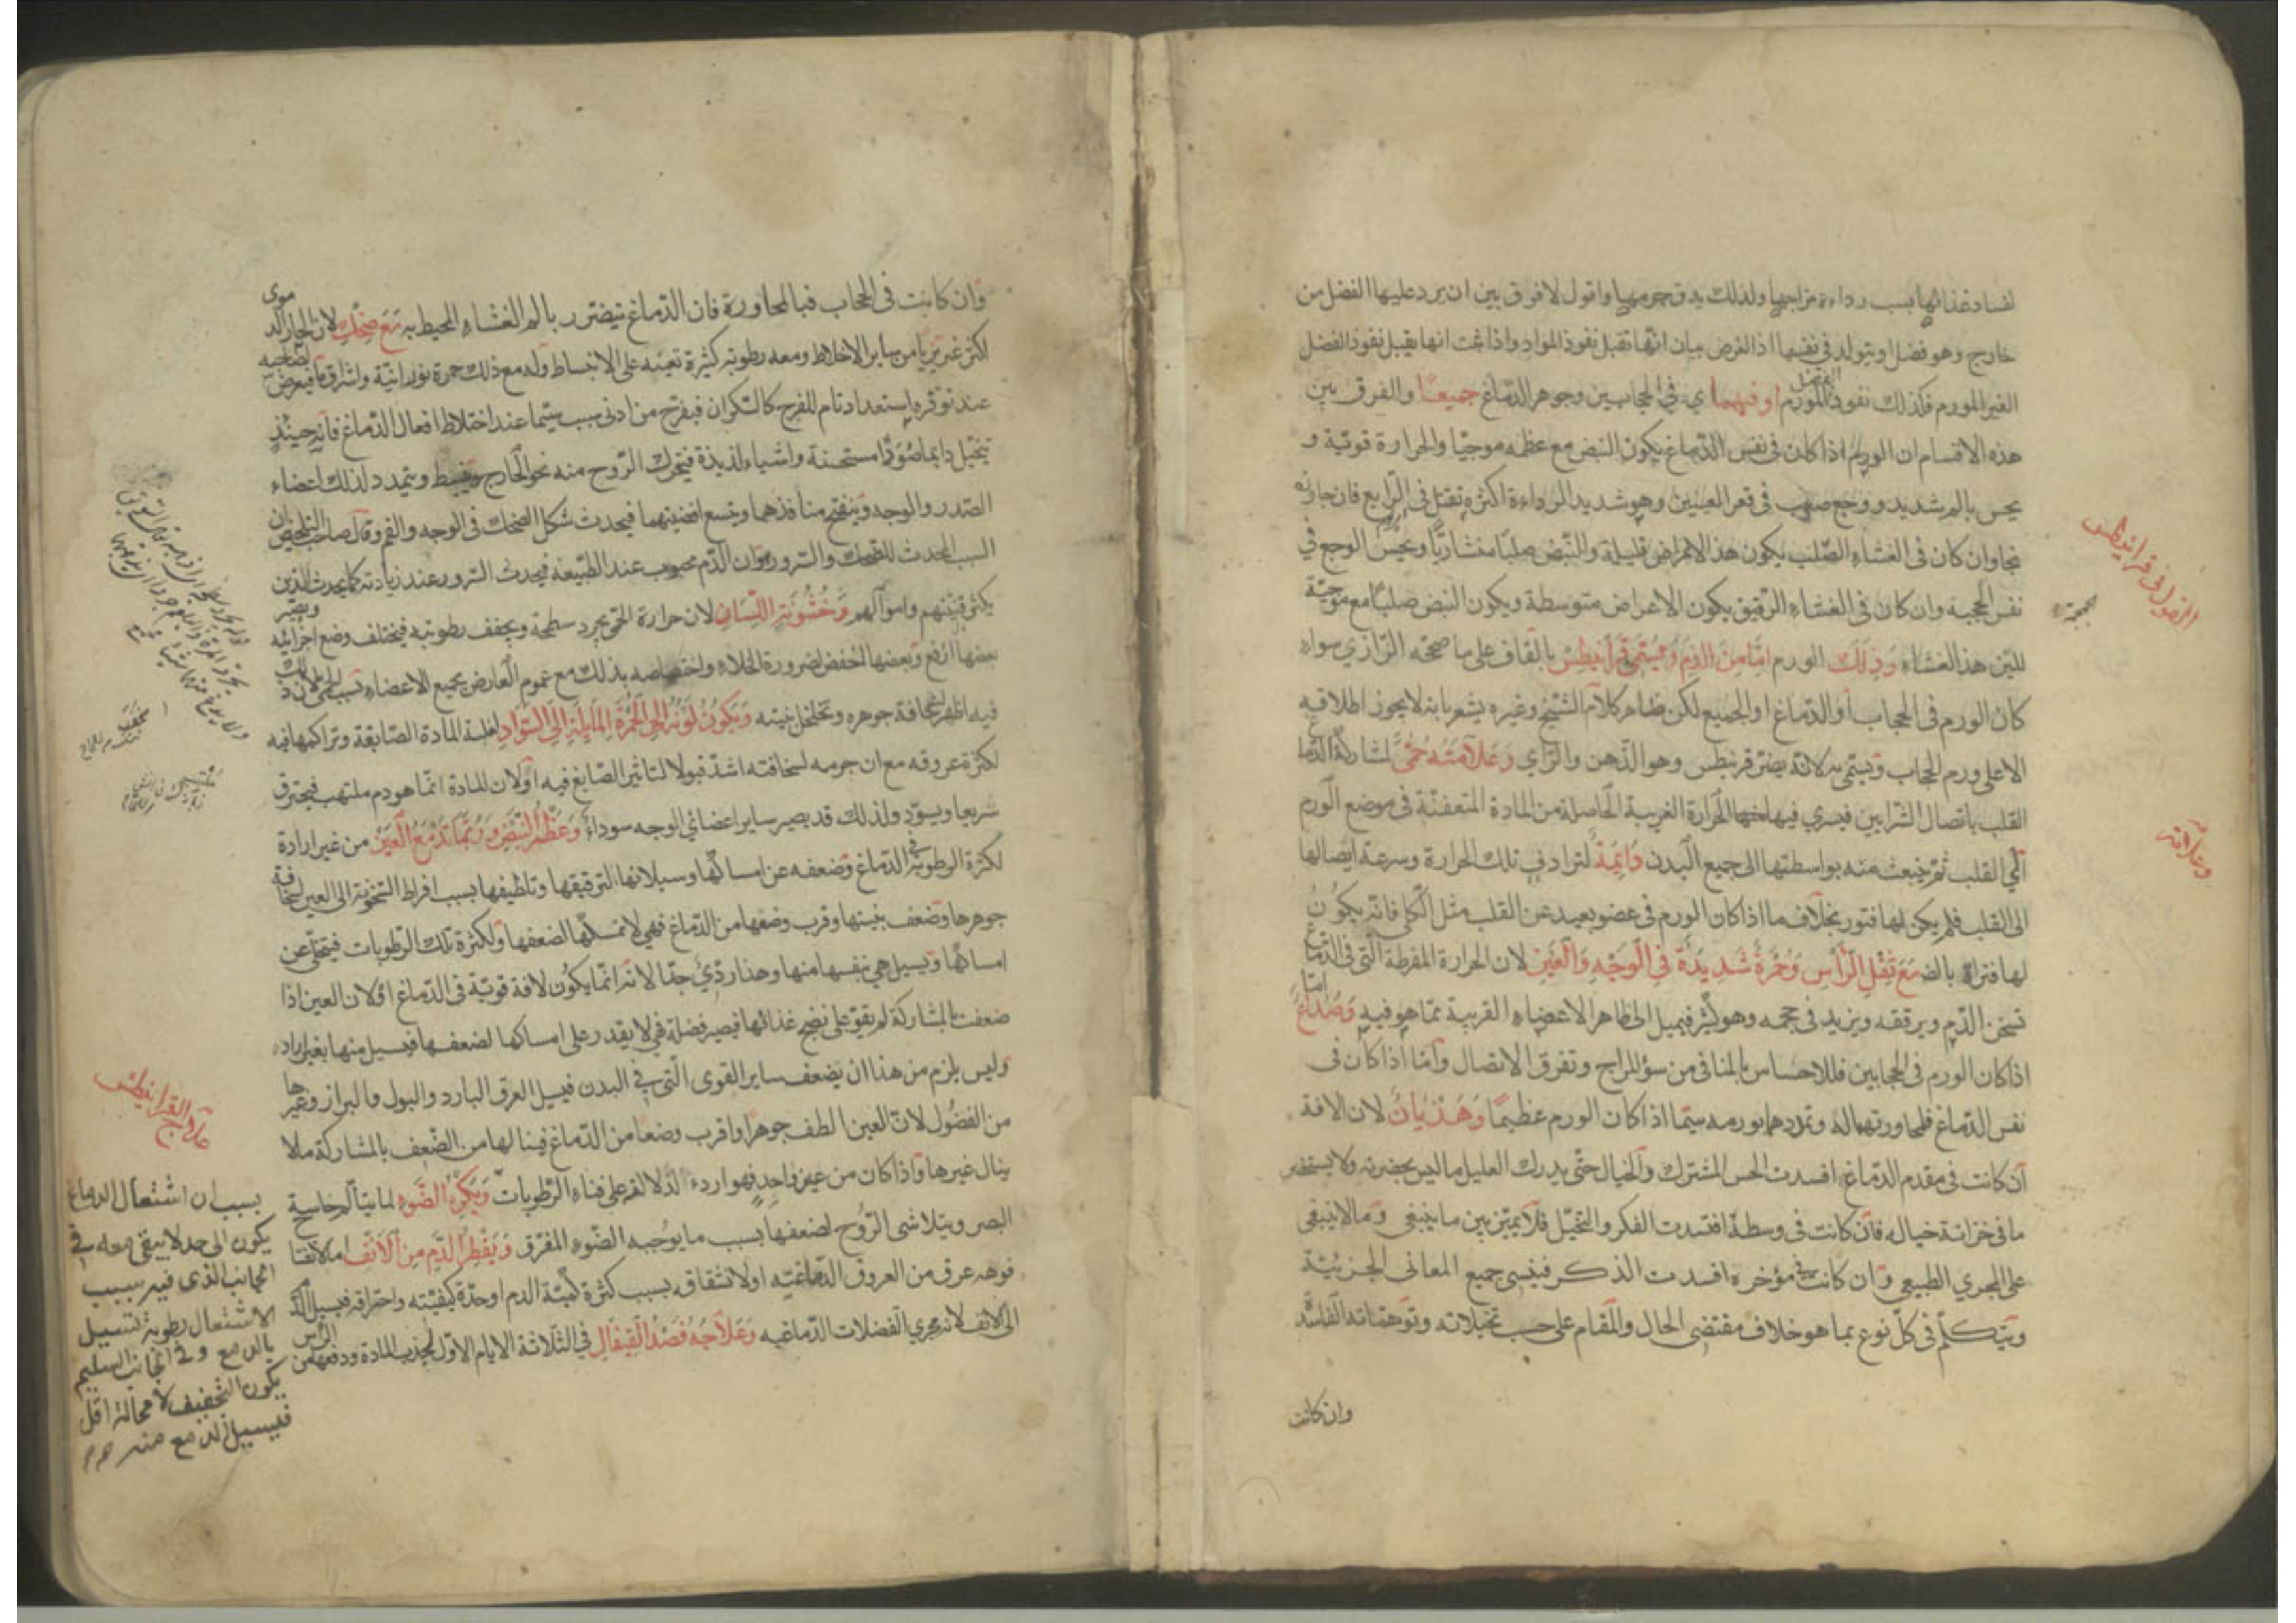 لفساد غذائها بسبب رداءة مزاجها ولذلك يدق جرمها واقول لا فرق بين ان يرد عليها الفضل من
خارج وهو فضل او يتولد فى نفسها اذ الغرض بيان انها تقبل نفوذ المواد واذا ثبت انها يقبل نفوذ الفضل
الغير المورم فكذلك نفوذ الفضل المورم او فيهما اي فى الحجابين وجوهر الدماغ جميعا والفرق بين
هذه الاقسام ان الورم اذا كان فى نفس الدماغ يكون النبض مع عظمه موجيا والحرارة قوية و
يحس بالم شديد ووجع صعب فى قعر العينين وهو شديد الرداءة اكثره تقتل فى الرابع فان جاوزه
نجا وان كان فى الغشاء الصلب يكون هذه الامراض قليلة والنبض صلبا منشاريا ويحس الوجع في
نفس الجمجمة وان كان فى الغشاء الرقيق يكون الاعراض متوسطة ويكون النبض صلبا مع موجية
للين هذا الغشاء وذلك الورم اما من الدم ويسمى قرانيطس بالقاف على ما صححه الرازي سواء
كان الورم فى الحجاب او الدماغ او الجميع لكن ظاهر كلام الشيخ وغيره يشعر بانه لا يجوز اطلاقه
الا على ورم الحجاب ويسمى به لانه يضر قرنيطس وهو الذهن والراي وعلامته حمى لمشاركة الدماغ
القلب باتصال الشرايين فيسري فيها الحرارة الغريبة الحاصلة من المادة المتعفنة فى موضع الورم
الى القلب ثم ينبعث منه بواسطتها الى جميع البدن دائمة لترادف تلك الحرارة وسرعة ايصالها
الى القلب فلم يكن لها فتور بخلاف ما اذا كان الورم فى عضو بعيد عن القلب مثل الكلى فانه يكون
لها فترات مع ثقل الرأس وحمرة شديدة في الوجه والعين لان الحرارة المفرطة التى فى الدماغ
تسخن الدم ويرققه ويزيد فى حجمه وهو كثير فيميل الى ظاهر الاعضاء القريبة مما هو فيه وصداع اما
اذا كان الورم فى الحجابين فللاحساس بالمنافى من سوء المزاج وتفرق الاتصال واما اذا كان فى
نفس الدماغ فلمجاورتهما له وتمددهما بورمه سيما اذا كان الورم عظيما وهذيان لان الافة
ان كانت فى مقدم الدماغ افسدت الحس المشترك والخيال حتى يدرك العليل ما ليس بحضرته ولا يستحضر
ما فى خزانة خياله فان كانت فى وسطه افسدت الفكر والتخيل فلا يميز بين ما ينبغى وما لا ينبغى
على المجري الطبيعي وان كانت فى مؤخره افسدت الذكر فينسى جميع المعانى الجزئية
ويتكلم فى كل نوع بما هو خلاف مقتضى الحال والمقام على حسب تخيلاته وتوهماته الفاسدة
وان كانت
القول فى قرانيطس
جمجمة
وعلامته
وان كانت فى الحجاب فبالمجاورة فان الدماغ يتضرر بالم الغشاء المحيط به مع ضحك لان الحار الدموى
اكثر غريزيا من ساير الاخلاط ومعه رطوبة كثيرة تعينه على الانبساط وله مع ذلك حمرة نورانية واشراق ما فيعرض لصاحبه
عند توفره استعداد تام للفرح كالسكران فيفرح من ادنى سبب سيما عند اختلاط افعال الدماغ فانه حينئذ
يتخيل دايما صورا مستحسنة واشياء لذيذة فيتحرك الروح منه نحو الخارج وينبسط ويتمدد لذلك اعضاء
الصدر والوجه وينفتح منافذهما ويتسع افضيتهما فيحدث شكل الضحك فى الوجه والفم وقال صاحب التلخيص ان
السبب المحدث للضحك والسرور هو ان الدم محبوب عند الطبيعة فيحدث السرور عند زيادته كما يحدث للذين
يكثر قنيتهم واموالهم وخشونة اللسان لان حرارة الحمى يجرد سطحه ويجفف رطوبته فيختلف وضع اجزائه ويصير
بعضها ارفع وبعضها اخفض لضرورة الخلاء واختصاصه بذلك مع عموم العارض بجميع الاعضاء بسبب الحمى لان ذلك
فيه اظهر لسخافة جوهره وتخلخل بنيته ويكون لونه الى الحمرة المايلة الى السواد لغلبة المادة الصابغة وتراكمها فيه
لكثرة عروقه مع ان جرمه لسخافته اشد قبولا لتاثير الصابغ فيه او لان المادة انما هو دم ملتهب فيحترق
سريعا ويسود ولذلك قد يصير ساير اعضائي الوجه سوداء وعظم النبض وربما تدمع العين من غير ارادة
لكثرة الرطوبة فى الدماغ وضعفه عن امساكها وسيلانها لترقيقها وتلطيفها بسبب افراط التسخونة الى العين لسخافة
جوهرها وضعف بنيتها وقرب وضعها من الدماغ فهي لا تمسكها لضعفها ولكثرة تلك الرطوبات فيتخلى عن
امساكها ويسيل هي بنفسها منها وهذا ردئ جدا لانه انما يكون لافة قوية فى الدماغ او لان العين اذا
ضعفت بالمشاركة لم يقو على نضج غذائها فيصير فضلة فهي لا يقدر على امساكها لضعفها فيسيل منها بغير ارادة
وليس يلزم من هذا ان يضعف ساير القوى التى في البدن فيسيل العرق البارد والبول والبراز وغيرها
من الفضول لان العين الطف جوهرا واقرب وضعا من الدماغ فينالها من الضعف بالمشاركة ما لا
ينال غيرها واذا كان من عين واحد فهو اردء لدلالته على فناء الرطوبات ويكره الضوء لما يتالم حاسة
البصر ويتلاشى الروح لضعفها بسبب ما يوجبه الضوء المفرق ويقطر الدم من الانف اما لانفتاح
فوهه عرق من العروق الدماغية او لانشقاقه بسبب كثرة كمية الدم او حدة كيفيته واحتراقه فيسيل الدم
الى الانف لانه مجري الفضلات الدماغيه وعلاجه فصد القيفال في الثلاثة الايام الاول لجذب المادة ودفعها من الرأس
علاج القرانيطس
بسبب ان اشتعال الدماغ
يكون الى حد لا يبقى معه في
الجانب الذى فيه بسبب
الاشتعال رطوبة تسيل
بالدمع وفى الجانب السليم
يكون التجفيف لا محالة اقل
فيسيل الدمع منه